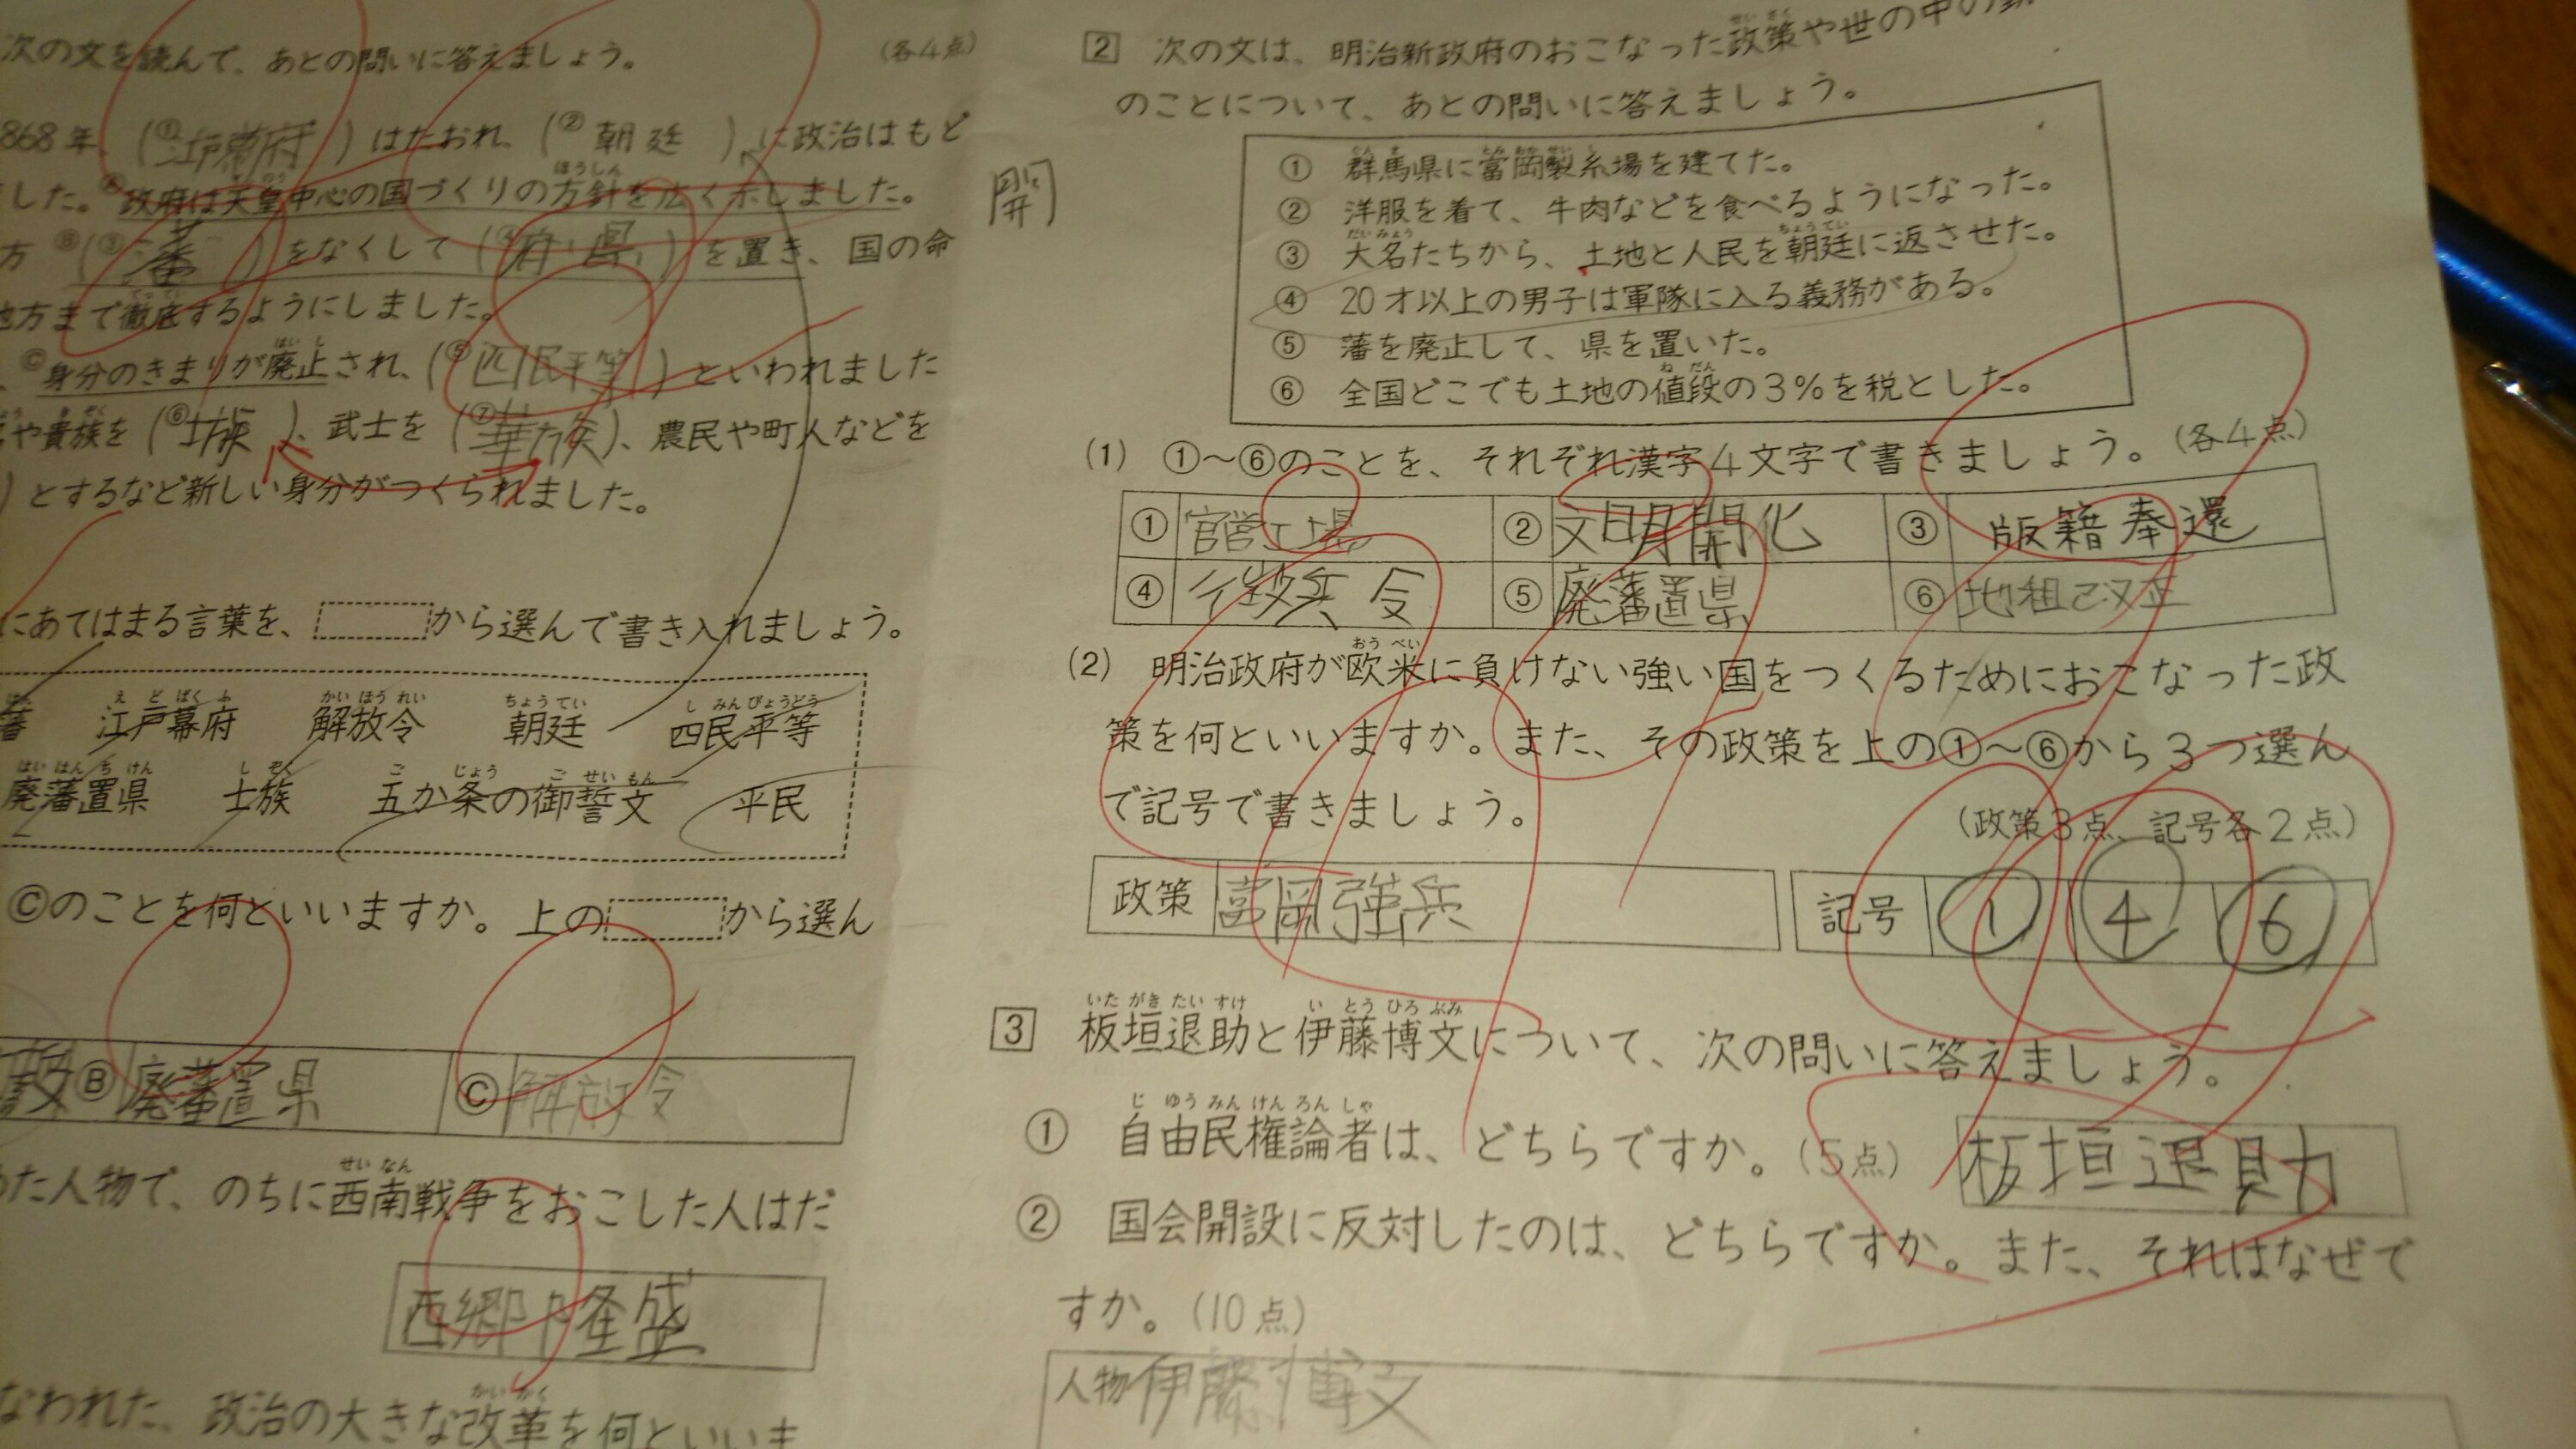 次の文を読んで、あとの問いに答えましょう。 (各4点)
868年、(① 江戸幕府 ) はたおれ、(② 朝廷 ) に政治はもど
した。Ⓐ政府は天皇中心の国づくりの方針を広く示しました。
方 Ⓑ(③ 藩 ) をなくして (④ 府・県 ) を置き、国の命
地方まで徹底するようにしました。
、Ⓒ身分のきまりが廃止され、(⑤ 四民平等 ) といわれました
や貴族を (⑥ 士族 )、武士を (⑦ 華族 )、農民や町人などを
) とするなど新しい身分がつくられました。
にあてはまる言葉を、 から選んで書き入れましょう。
藩 江戸幕府 解放令 朝廷 四民平等
廃藩置県 士族 五か条の御誓文 平民
Ⓒのことを何といいますか。上の から選ん
Ⓑ 廃藩置県 Ⓒ 解放令
た人物で、のちに西南戦争をおこした人はだ
西郷隆盛
なわれた、政治の大きな改革を何といいま
開
2 次の文は、明治新政府のおこなった政策や世の中の
のことについて、あとの問いに答えましょう。
① 群馬県に富岡製糸場を建てた。
② 洋服を着て、牛肉などを食べるようになった。
③ 大名たちから、土地と人民を朝廷に返させた。
④ 20才以上の男子は軍隊に入る義務がある。
⑤ 藩を廃止して、県を置いた。
⑥ 全国どこでも土地の値段の3%を税とした。
(1) ①～⑥のことを、それぞれ漢字4文字で書きましょう。(各4点)
① 官営工場 ② 文明開化 ③ 版籍奉還
④ 徴兵令 ⑤ 廃藩置県 ⑥ 地租改正
(2) 明治政府が欧米に負けない強い国をつくるためにおこなった政
策を何といいますか。また、その政策を上の①～⑥から3つ選ん
で記号で書きましょう。
(政策3点、記号各2点)
政策 富岡強兵 記号 ① ④ ⑥
3 板垣退助と伊藤博文について、次の問いに答えましょう。
① 自由民権論者は、どちらですか。(5点) 板垣退助
② 国会開設に反対したのは、どちらですか。また、それはなぜで
すか。(10点)
人物 伊藤博文